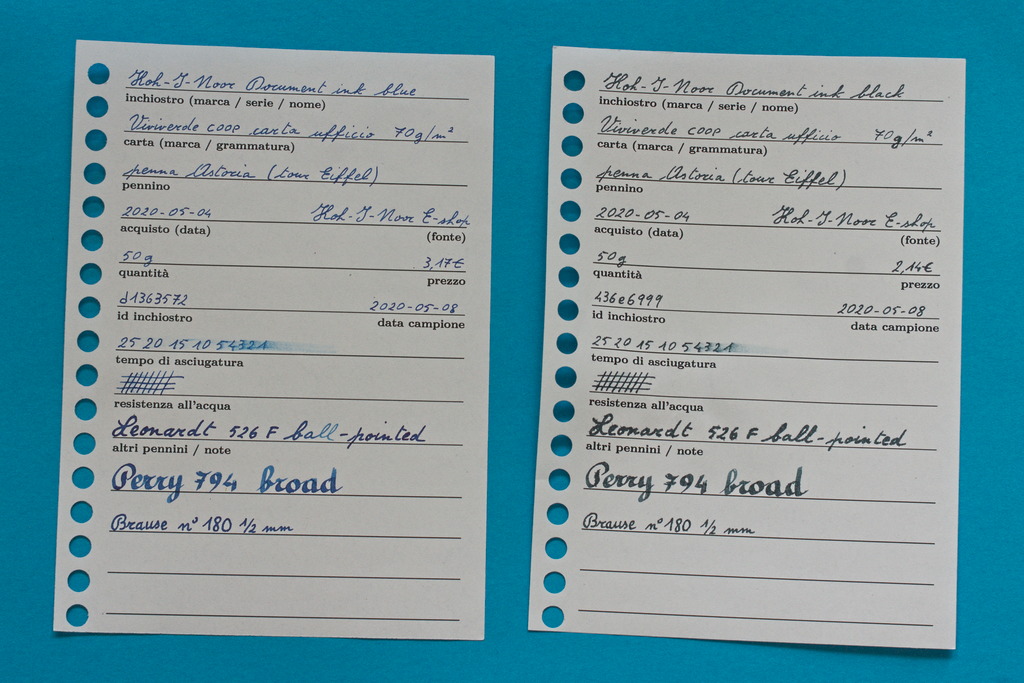 Koh-I-Noor Document ink blue
inchiostro (marca / serie / nome)
Viviverde coop carta ufficio 70g/m²
carta (marca / grammatura)
penna Astoria (tour Eiffel)
pennino
2020-05-04 Koh-I-Noor E-shop
acquisto (data) (fonte)
50g 3,17€
quantità prezzo
d1363572 2020-05-08
id inchiostro data campione
25 20 15 10 5 4 3 2 1
tempo di asciugatura
resistenza all'acqua
Leonardt 526 F ball-pointed
altri pennini / note
Perry 794 broad
Brause n° 180 1/2 mm
Koh-I-Noor Document ink black
inchiostro (marca / serie / nome)
Viviverde coop carta ufficio 70g/m²
carta (marca / grammatura)
penna Astoria (tour Eiffel)
pennino
2020-05-04 Koh-I-Noor E-shop
acquisto (data) (fonte)
50g 2,14€
quantità prezzo
436e6999 2020-05-08
id inchiostro data campione
25 20 15 10 5 4 3 2 1
tempo di asciugatura
resistenza all'acqua
Leonardt 526 F ball-pointed
altri pennini / note
Perry 794 broad
Brause n° 180 1/2 mm